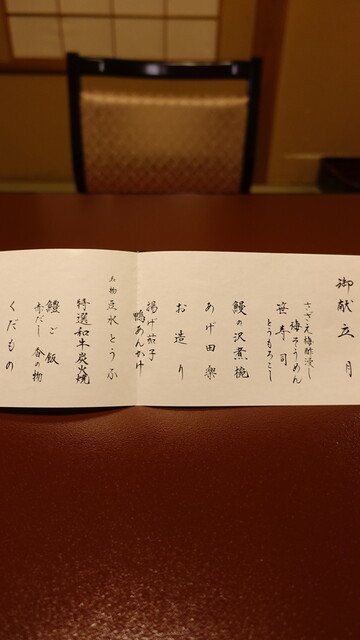 御献立 月
さざえ梅酢浸し
梅そうめん
笹寿司
とうもろこし
鰻の沢煮椀
あげ田楽
お造り
揚げ茄子
鴨あんかけ
お物 豆水とうふ
特選和牛炭火焼
鱧ご飯
赤だし 香の物
くだもの